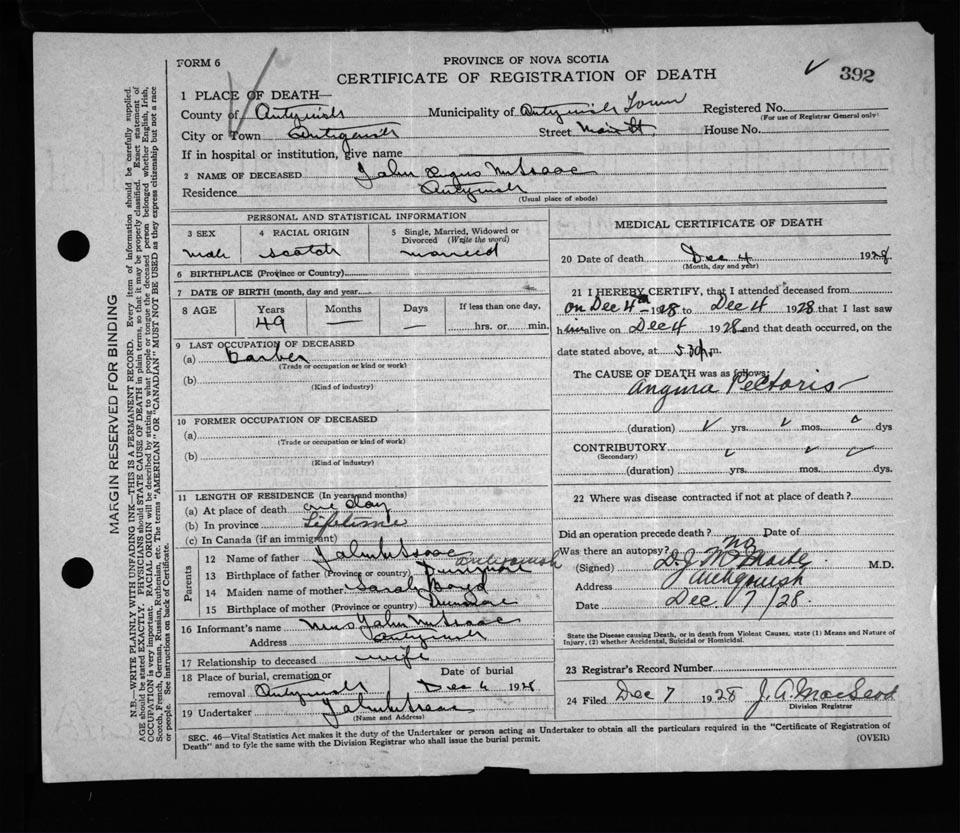 FORM 6
PROVINCE OF NOVA SCOTIA
CERTIFICATE OF REGISTRATION OF DEATH
392
1 PLACE OF DEATH—
County of Antigonish Municipality of Antigonish Town Registered No.
(For use of Registrar General only)
City or Town Antigonish Street Main St House No.
If in hospital or institution, give name
2 NAME OF DECEASED John Angus McIsaac
Residence Antigonish
(Usual place of abode)
PERSONAL AND STATISTICAL INFORMATION
3 SEX
male
4 RACIAL ORIGIN
scotch
5 Single, Married, Widowed or Divorced (Write the word)
married
6 BIRTHPLACE (Province or Country)
7 DATE OF BIRTH (month, day and year)
8 AGE
Years Months Days If less than one day,
49 — — hrs. or min.
9 LAST OCCUPATION OF DECEASED
(a) Barber
(Trade or occupation or kind or work)
(b)
(Kind of industry)
10 FORMER OCCUPATION OF DECEASED
(a)
(Trade or occupation or kind of work)
(b)
(Kind of industry)
11 LENGTH OF RESIDENCE (In years and months)
(a) At place of death one day
(b) In province Lifetime
(c) In Canada (if an immigrant)
Parents
12 Name of father John McIsaac
Antigonish
13 Birthplace of father (Province or country) Dunmore
14 Maiden name of mother Sarah Boyd
15 Birthplace of mother (Province or country) Dunmore
16 Informant's name Mrs John McIsaac
Address Antigonish
17 Relationship to deceased wife
18 Place of burial, cremation or removal Antigonish
Date of burial
Dec 6 1928
19 Undertaker John McIsaac
(Name and Address)
MEDICAL CERTIFICATE OF DEATH
20 Date of death Dec 4 1928
(Month, day and year)
21 I HEREBY CERTIFY, that I attended deceased from
on Dec 4th — 1928 to Dec 4 1928 that I last saw
him alive on Dec 4 1928 and that death occurred, on the
date stated above, at 5.30 p.m.
The CAUSE OF DEATH was as follows:
Angina Pectoris
(duration) yrs. mos. dys
CONTRIBUTORY
(Secondary)
(duration) yrs. mos. dys.
22 Where was disease contracted if not at place of death?
Did an operation precede death? Date of
Was there an autopsy? No
(Signed) M.D.
Address Antigonish
Date Dec 7/28
State the Disease causing Death, or in death from Violent Causes, state (1) Means and Nature of Injury, (2) whether Accidental, Suicidal or Homicidal.
23 Registrar's Record Number
24 Filed Dec 7 1928 J. A. MacLeod
Division Registrar
SEC. 46—Vital Statistics Act makes it the duty of the Undertaker or person acting as Undertaker to obtain all the particulars required in the "Certificate of Registration of
Death" and to fyle the same with the Division Registrar who shall issue the burial permit.
(OVER)
MARGIN RESERVED FOR BINDING
N.B.—WRITE PLAINLY WITH UNFADING INK—THIS IS A PERMANENT RECORD. Every item of information should be carefully supplied.
AGE should be stated EXACTLY. PHYSICIANS should STATE CAUSE OF DEATH in plain terms, so that it may be properly classified. Exact statement of
OCCUPATION is very important. RACIAL ORIGIN will be described by stating to what people or tongue the deceased person belonged whether English, Irish,
Scotch, French, German, Russian, Ruthenian, etc. The terms "AMERICAN" OR "CANADIAN" MUST NOT BE USED as they express citizenship but not a race
or people. See instructions on back of Certificate.